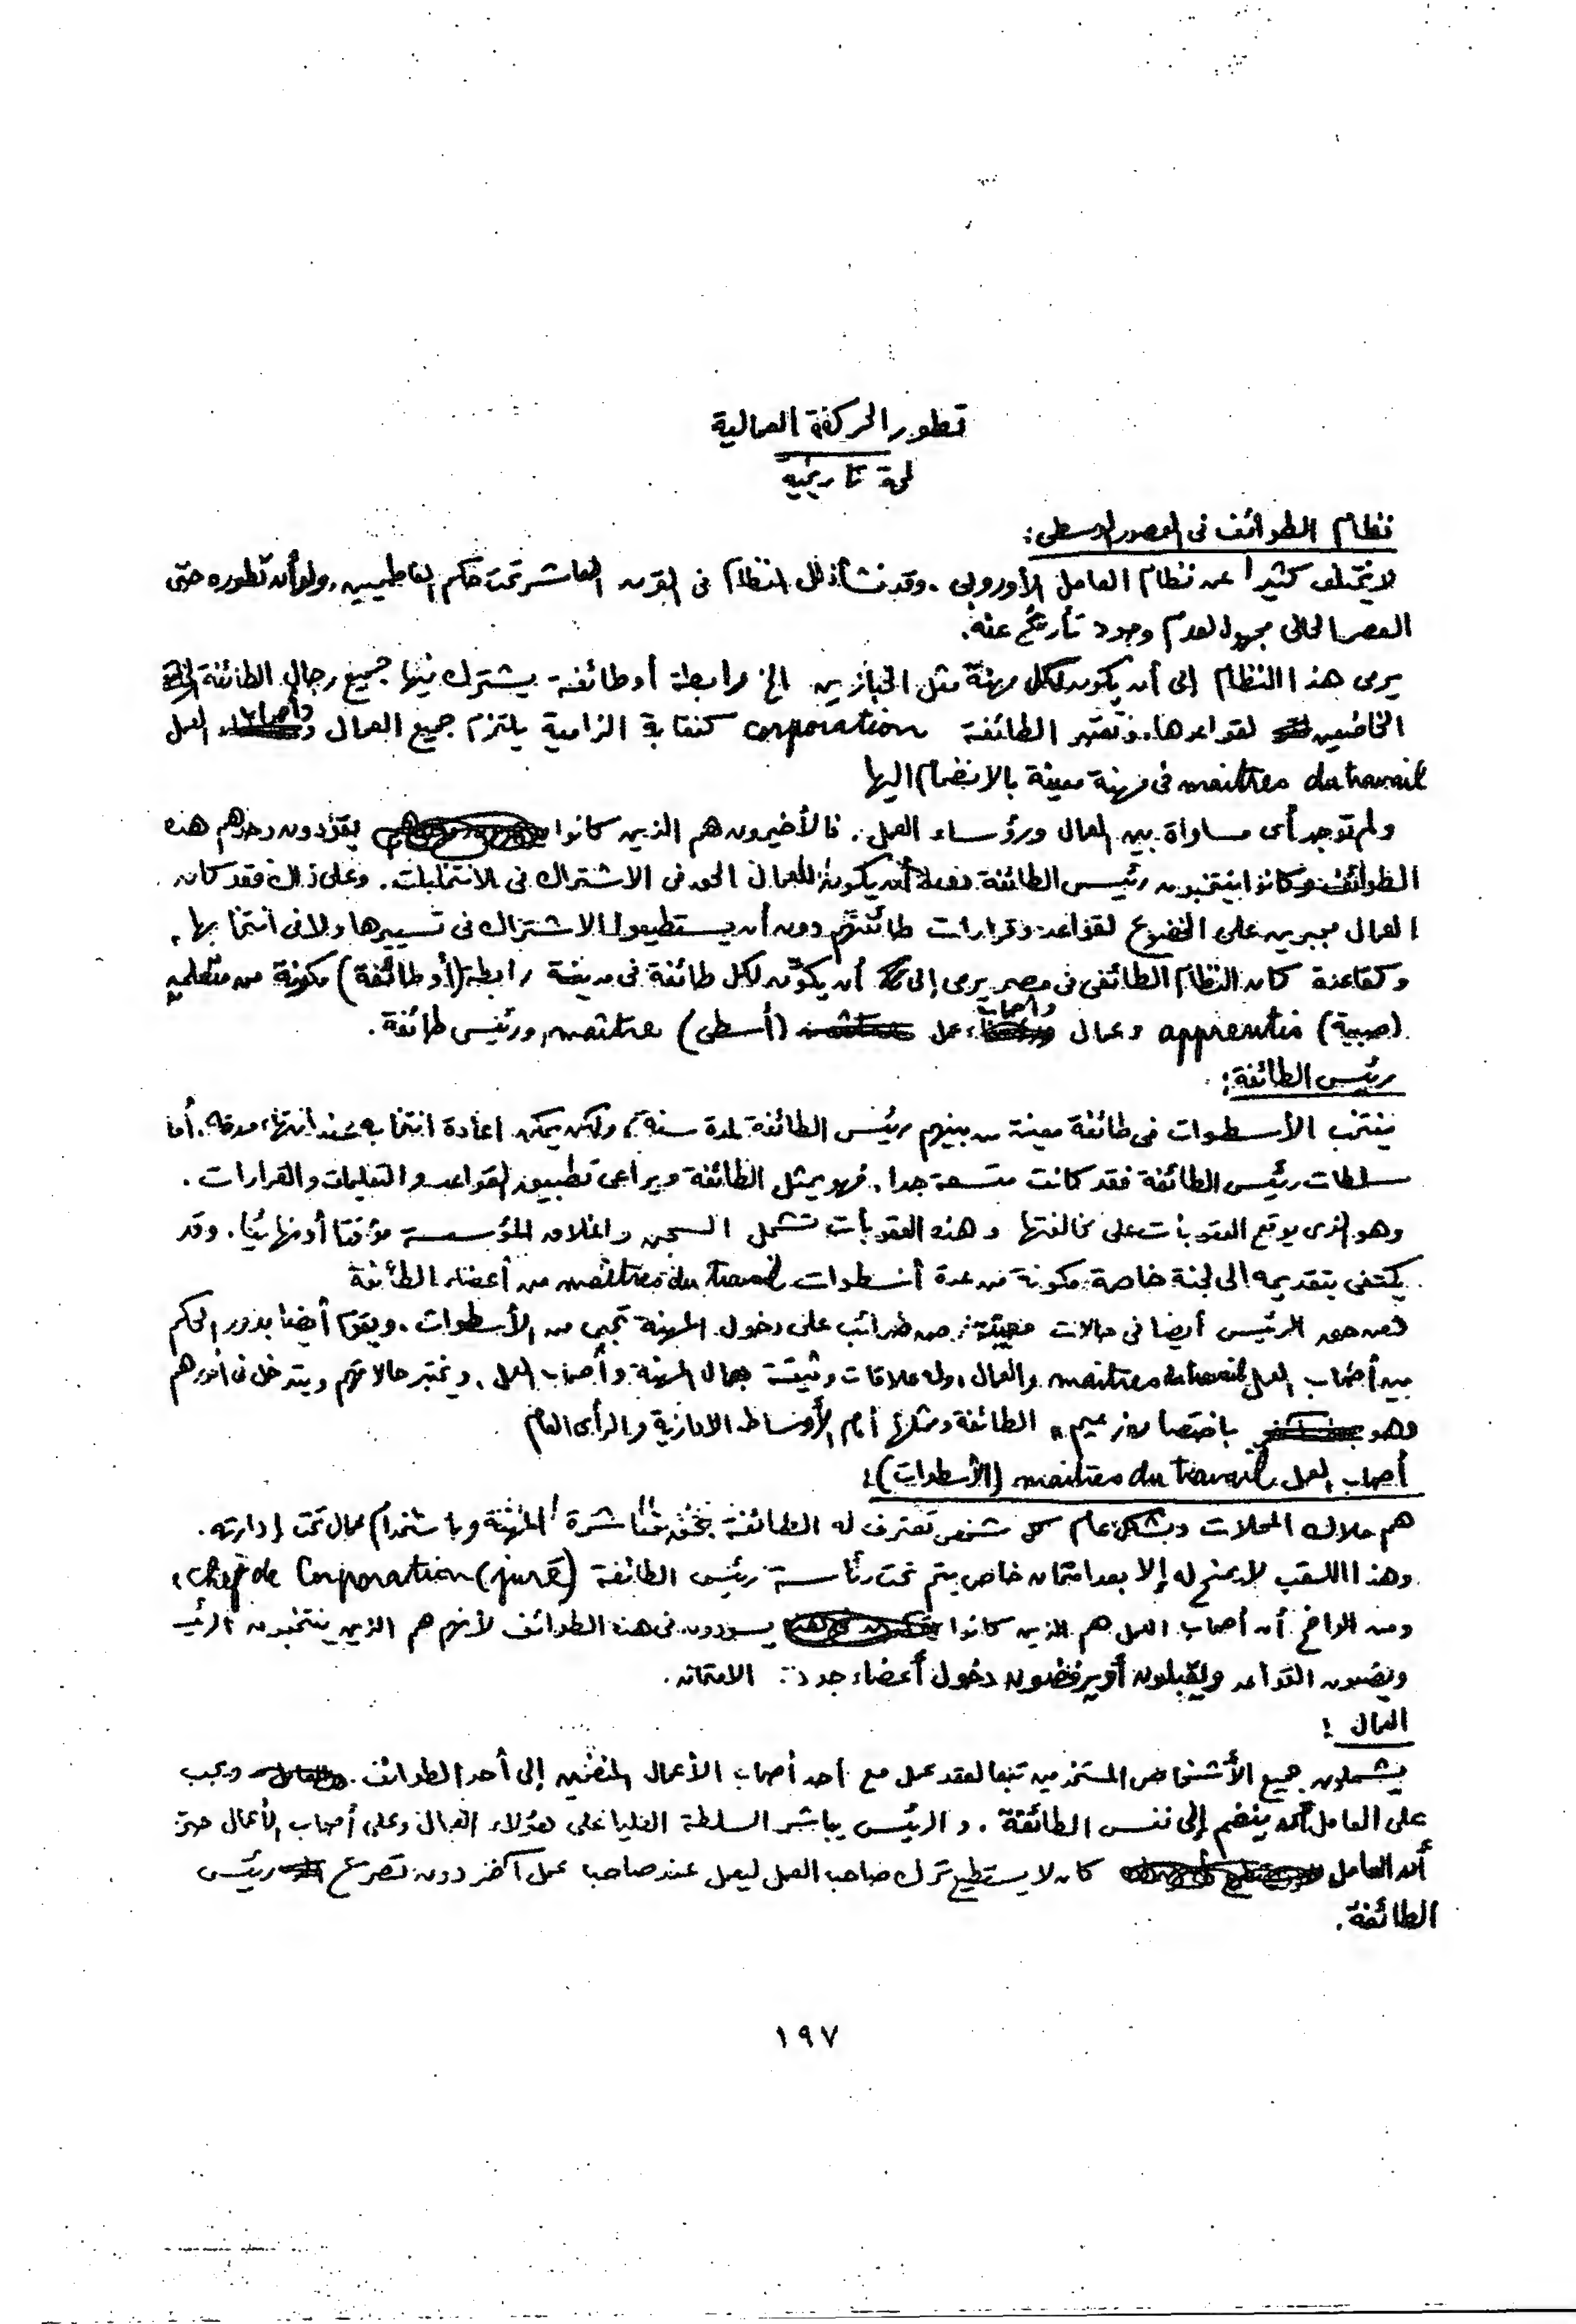 تطور الحركة العمالية
لمحة تاريخية
نظام الطوائف فى العصور الوسطى:
لا يختلف كثيرا عن نظام العامل الأوروبى. وقد نشأ ذلك النظام فى القرن العاشر تحت حكم الفاطميين، ولو أن تطوره حتى
العصر الحالى مجهول لعدم وجود تأريخ عنه.
يرمى هذا النظام إلى أن يكون لكل مهنة مثل الخبازين الخ رابطة أو طائفة يشترك فيها جميع رجال الطائفة
الخاضعين لقواعدها. وتعتبر الطائفة corporation كنقابة الزامية يلتزم جميع العمال وأصحاب العمل
maîtres du travail فى مهنة معينة بالانضمام اليها
ولم توجد أى مساواة بين العمال ورؤساء العمل. فالأخيرون هم الذين كانوا يقودون وحدهم هذه
الطوائف وكانوا ينتخبون رئيس الطائفة دون أن يكون للعمال الحق فى الاشتراك فى الانتخابات. وعلى ذلك فقد كان
العمال مجبرين على الخضوع لقواعد وقرارات طائفتهم دون أن يستطيعوا الاشتراك فى تسييرها ولا فى انتخابها.
وكقاعدة كان النظام الطائفى فى مصر يرمى إلى أن يكون لكل طائفة فى مدينة رابطة (أو طائفة) مكونة من متعلمين
(صبية) apprentis وعمال وأصحاب عمل (أسطى) maître ورئيس طائفة.
رئيس الطائفة:
ينتخب الأسطوات فى طائفة معينة من بينهم رئيس الطائفة لمدة سنة، ولكن يمكن اعادة انتخابه عند انتهاء مدته. أما
سلطات رئيس الطائفة فقد كانت متسعة جدا. فهو يمثل الطائفة ويراعى تطبيق القواعد والتعليمات والقرارات.
وهو الذى يوقع العقوبات على مخالفتها وهذه العقوبات تشمل السجن واغلاق المؤسسة مؤقتا أو نهائيا. وقد
يكتفى بتقديمه الى لجنة خاصة مكونة من عدة أسطوات maîtres du travail من أعضاء الطائفة
الرئيس أيضا فى حالات معينة ضرائب على دخول المهنة تجبى من الأسطوات. ويقوم أيضا بدور الحكم
بين أصحاب العمل maîtres du travail والعمال وله علاقات وثيقة بعمال المهنة وأصحاب العمل، ويختبر حالاتهم ويتدخل فى أمورهم
وهو باختصار "زعيم" الطائفة وممثلها أمام الأوساط الادارية والرأى العام
أصحاب العمل maîtres du travail (الأسطوات):
هم ملاك المحلات وبشكل عام كل شخص تعترف له الطائفة بحق مباشرة المهنة وباستخدام عمال تحت إدارته.
وهذا اللقب لا يمنح له إلا بعد امتحان خاص يتم تحت رئاسة رئيس الطائفة chef de Corporation (juré)،
ومن الواضح أن أصحاب العمل هم الذين كانوا يسودون فى هذه الطوائف لأنهم هم الذين ينتخبون الرئيس
ويضعون القواعد ويقبلون أو يرفضون دخول أعضاء جدد: الامتحان.
العمال:
يشملون جميع الأشخاص المستخدمين تبعا لعقد عمل مع أحد أصحاب الأعمال المنضمين إلى أحد الطوائف. ويجب
على العامل أن ينضم إلى نفس الطائفة. والرئيس يباشر السلطة العليا على هؤلاء العمال وعلى أصحاب الأعمال حتى
أن العامل كان لا يستطيع ترك صاحب العمل ليعمل عند صاحب عمل آخر دون تصريح رئيس
الطائفة.
١٩٧